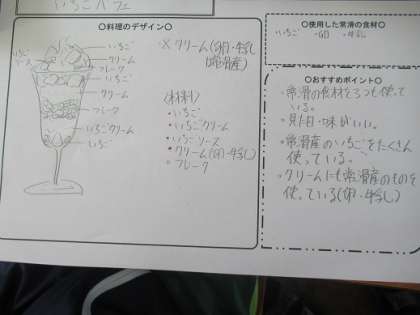 いちごパフェ
○料理のデザイン○
いちご
いちごソース
クリーム
フレーク
いちご
クリーム
フレーク
いちごクリーム
いちご
※クリーム(卵・牛乳
常滑産)
〈材料〉
・いちご
・いちごクリーム
・いちごソース
・クリーム(卵・牛乳)
・フレーク
○使用した常滑の食材○
・いちご ・卵 ・牛乳
○おすすめポイント○
・常滑の食材を3つも使って
いる。
・見た目・味がいい。
・常滑産のいちごをたくさん
使っている。
・クリームにも常滑産のものを
使っている(卵・牛乳)